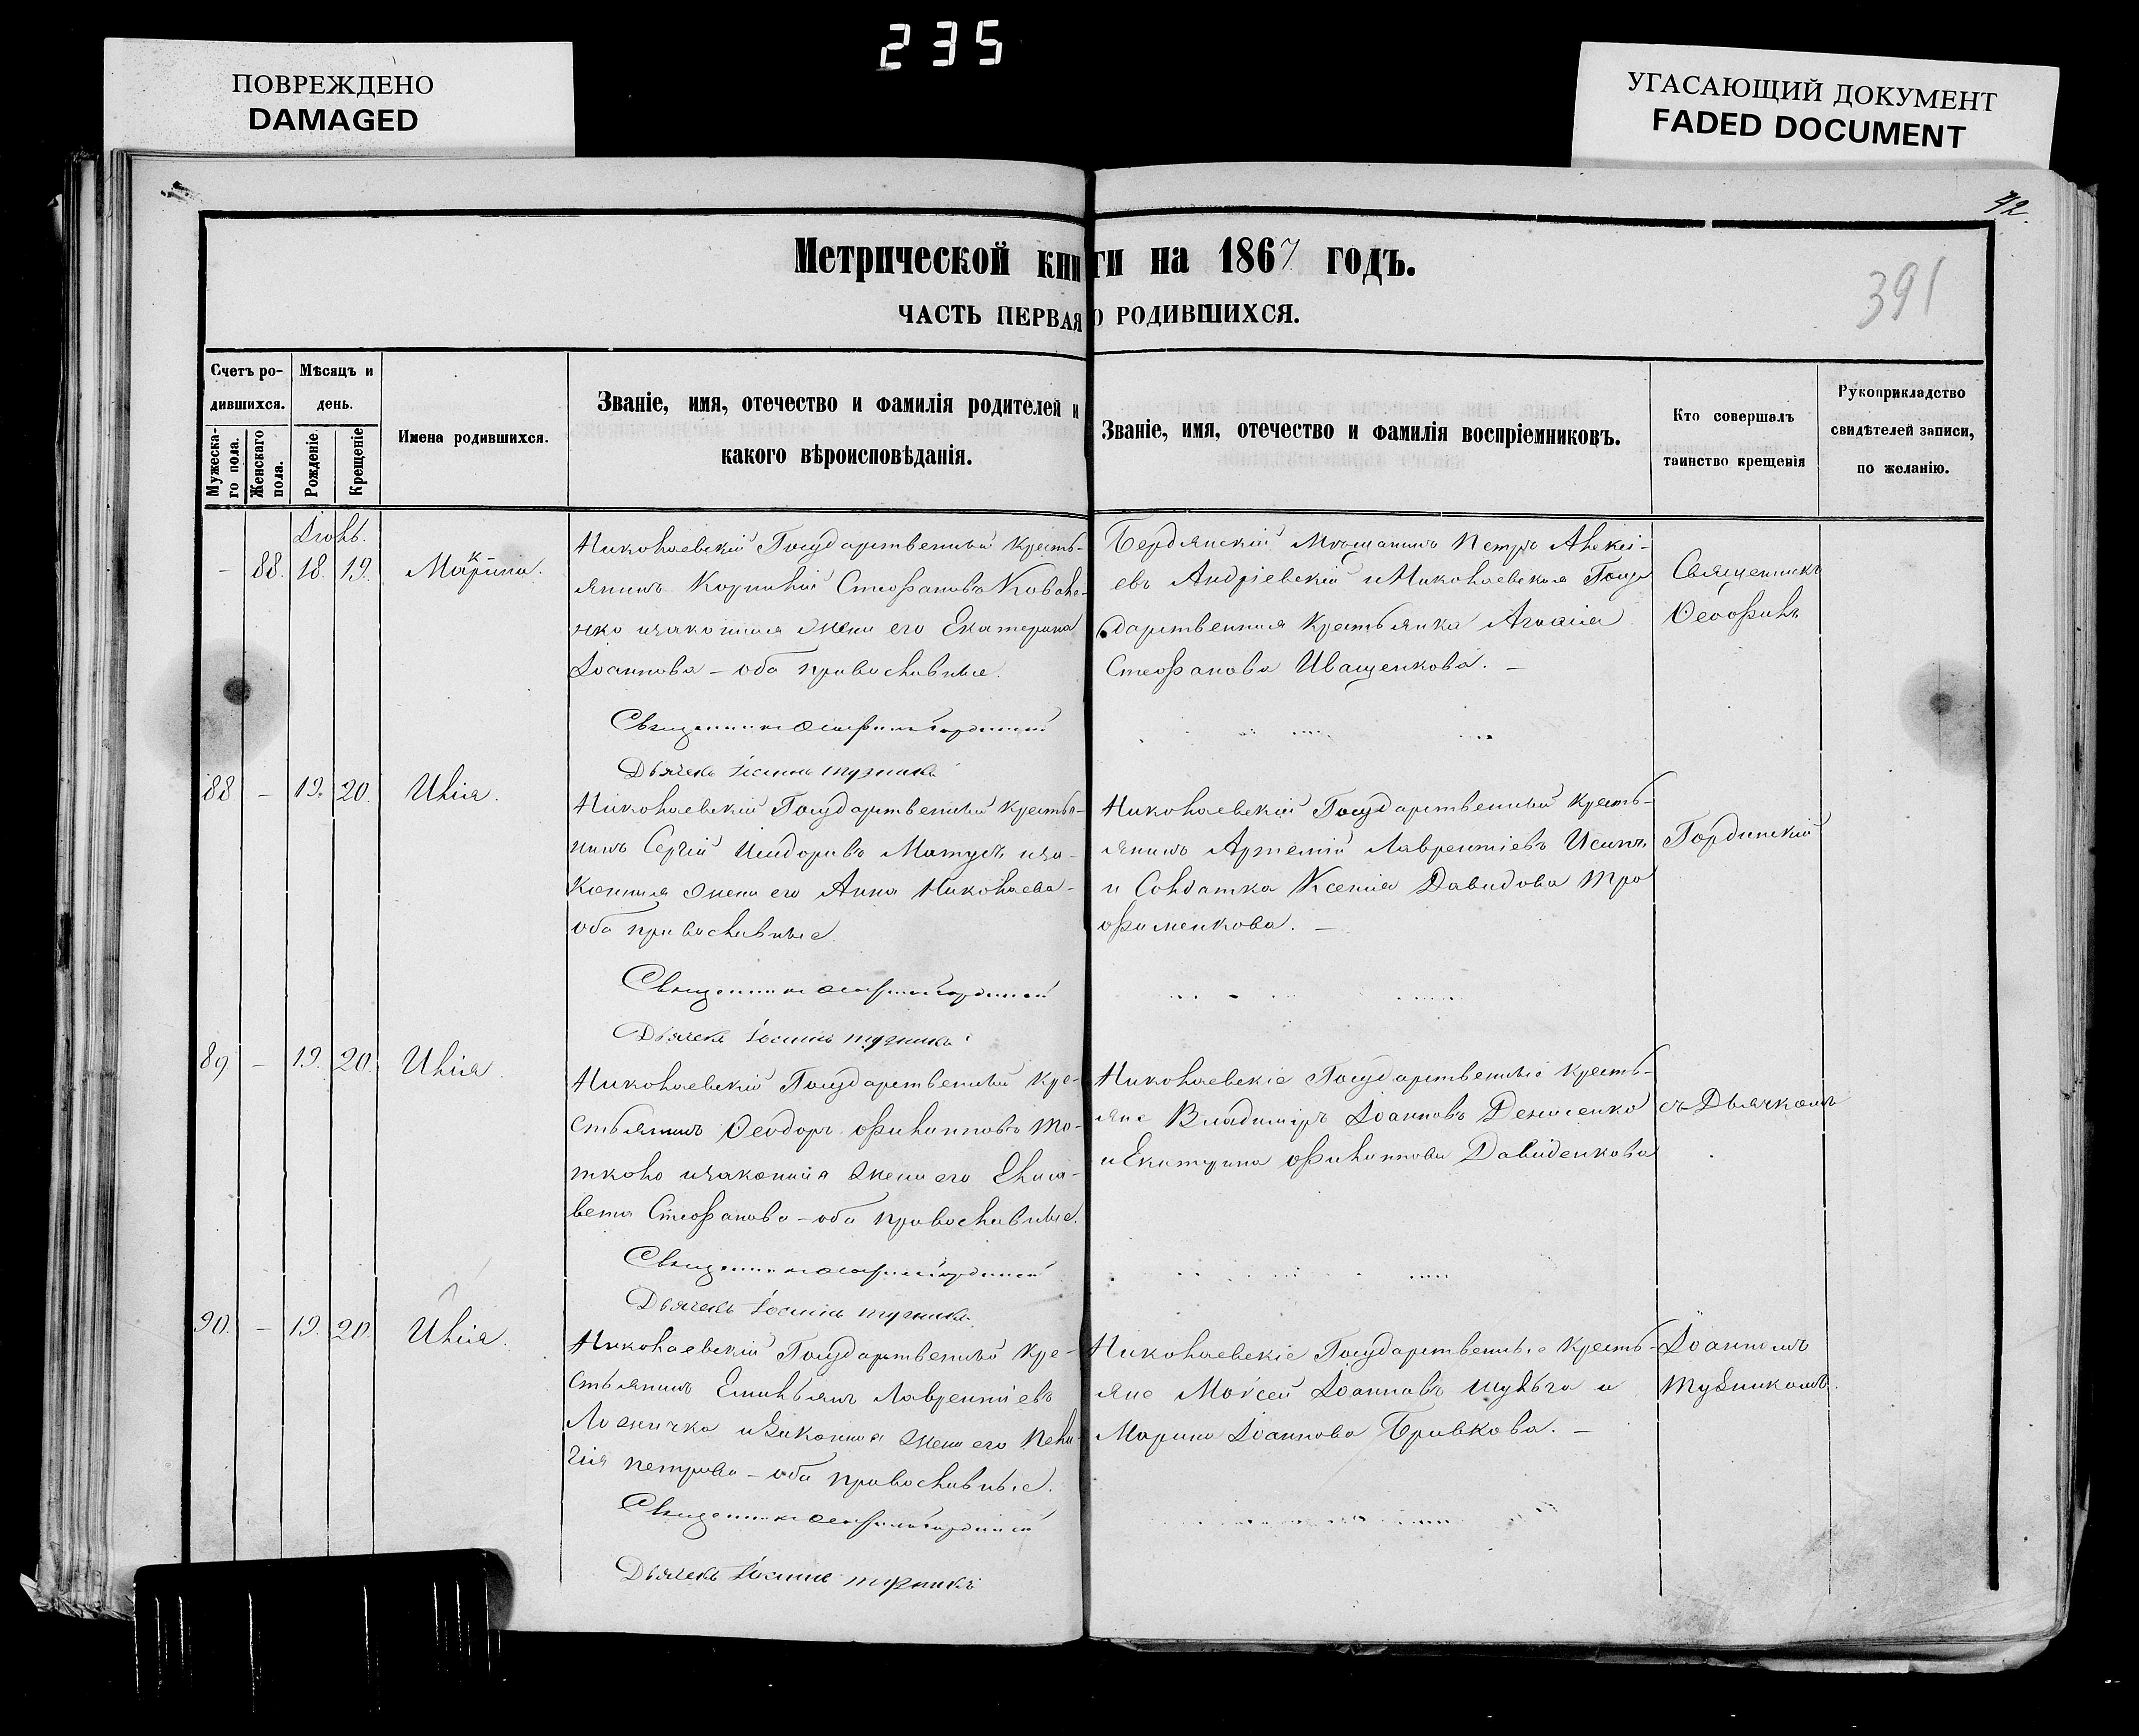 235
ПОВРЕЖДЕНО
DAMAGED
УГАСАЮЩИЙ ДОКУМЕНТ
FADED DOCUMENT
42.
391
Метрической книги на 1867 годъ.
ЧАСТЬ ПЕРВАЯ О РОДИВШИХСЯ.
Счетъ ро-
дившихся.
Мужеска-
го пола.
Женскаго
пола.
Мѣсяцъ и
день.
Рожденіе.
Крещеніе
Имена родившихся.
Званіе, имя, отечество и фамилія родителей и
какого вѣроисповѣданія.
Званіе, имя, отечество и фамилія воспріемниковъ.
Кто совершалъ
таинство крещенія
Рукоприкладство
свидѣтелей записи,
по желанію.
Іюль.
– 88. 18. 19. Марина.
Николаевскій Государственный Кресть-
янинъ Корнилій Стефановъ Ковале-
нко изаконная жена его Екатерина
Іоаннова – оба православные.
Священникъ Феофилъ Гординскій
Дьячекъ Іоаннъ Тузникъ
Бердянскій Мѣщанинъ Петръ Алексі-
евъ Андріевскій и Николаевская Госу
дарственная Крестьянка Агафія
Стефанова Иващенкова. –
Священникъ
Феофилъ
88 – 19. 20. Илія.
Николаевскій Государственный Крестья-
нинъ Сергій Исидоровъ Матусъ иза-
конная жена его Анна Николаева –
оба православные.
Священникъ Феофилъ Гординскій
Дьячекъ Іоаннъ Тузникъ
Николаевскій Государственный Кресть-
янинъ Артемій Лаврентіевъ
и Солдатка Ксенія Давидова Тро
фименкова. –
Гординскій
89 – 19. 20. Илія.
Николаевскій Государственный Кре-
стьянинъ Феодоръ Филипповъ То-
изаконная жена его Елиса-
вета Стефанова – оба православные.
Священникъ Феофилъ Гординскій
Дьячекъ Іоаннъ Тузникъ
Николаевскіе Государственные Кресть-
яне Владиміръ Іоанновъ Денисенко
и Екатерина Филиппова Давиденкова
съ Дьячкомъ
90. – 19. 20. Илія.
Николаевскій Государственный Кре-
стьянинъ Емиліянъ Лаврентіевъ
изаконная жена его Пела-
гія Петрова – оба православные.
Священникъ Феофилъ Гординскій
Дьячекъ Іоаннъ Тузникъ
Николаевскіе Государственные Кресть-
яне Моѵсей Іоанновъ Шульга и
Марина Іоаннова Бривкова. –
Іоанномъ
Тузникомъ.